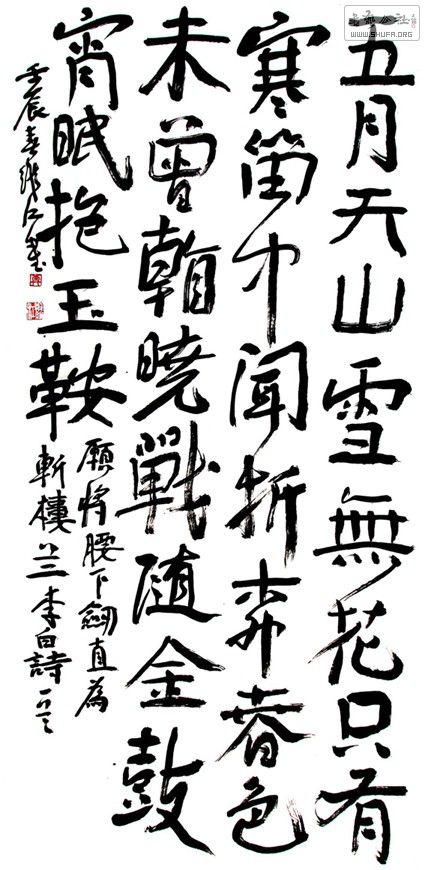 五月天山雪無花只有
寒笛中聞折柳春色
未曾看曉戰隨金鼓
宵眠抱玉鞍
願將腰下劍直為
斬樓蘭李白詩一首
壬辰春
WWW.SHUFA.ORG